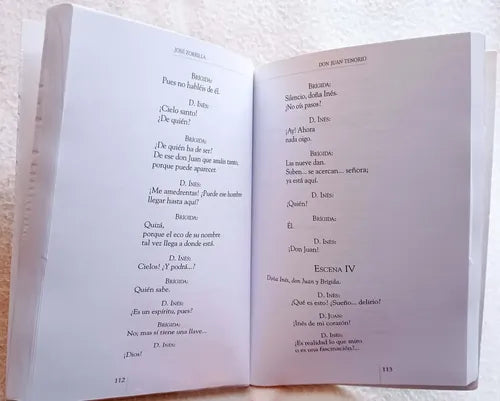 JOSÉ ZORRILLA
BRÍGIDA:
Pues no habléis de él.
D. INÉS:
¡Cielo santo!
¿De quién?
BRÍGIDA:
¿De quién ha de ser?
De ese don Juan que amáis tanto,
porque puede aparecer.
D. INÉS:
¡Me amedrentas! ¿Puede ese hombre
llegar hasta aquí?
BRÍGIDA:
Quizá,
porque el eco de su nombre
tal vez llega a donde está.
D. INÉS:
¡Cielos! ¿Y podrá...?
BRÍGIDA:
Quién sabe.
D. INÉS:
¿Es un espíritu, pues?
BRÍGIDA:
No; mas si tiene una llave...
D. INÉS:
¡Dios!
112
DON JUAN TENORIO
BRÍGIDA:
Silencio, doña Inés.
¿No oís pasos?
D. INÉS:
¡Ay! Ahora
nada oigo.
BRÍGIDA:
Las nueve dan.
Suben... se acercan... señora;
ya está aquí.
D. INÉS:
¿Quién?
BRÍGIDA:
Él.
D. INÉS:
¡Don Juan!
ESCENA IV
Doña Inés, don Juan y Brígida.
D. INÉS:
¿Qué es esto? ¿Sueño... deliro?
D. JUAN:
¡Inés de mi corazón!
D. INÉS:
¿Es realidad lo que miro
o es una fascinación?...
113